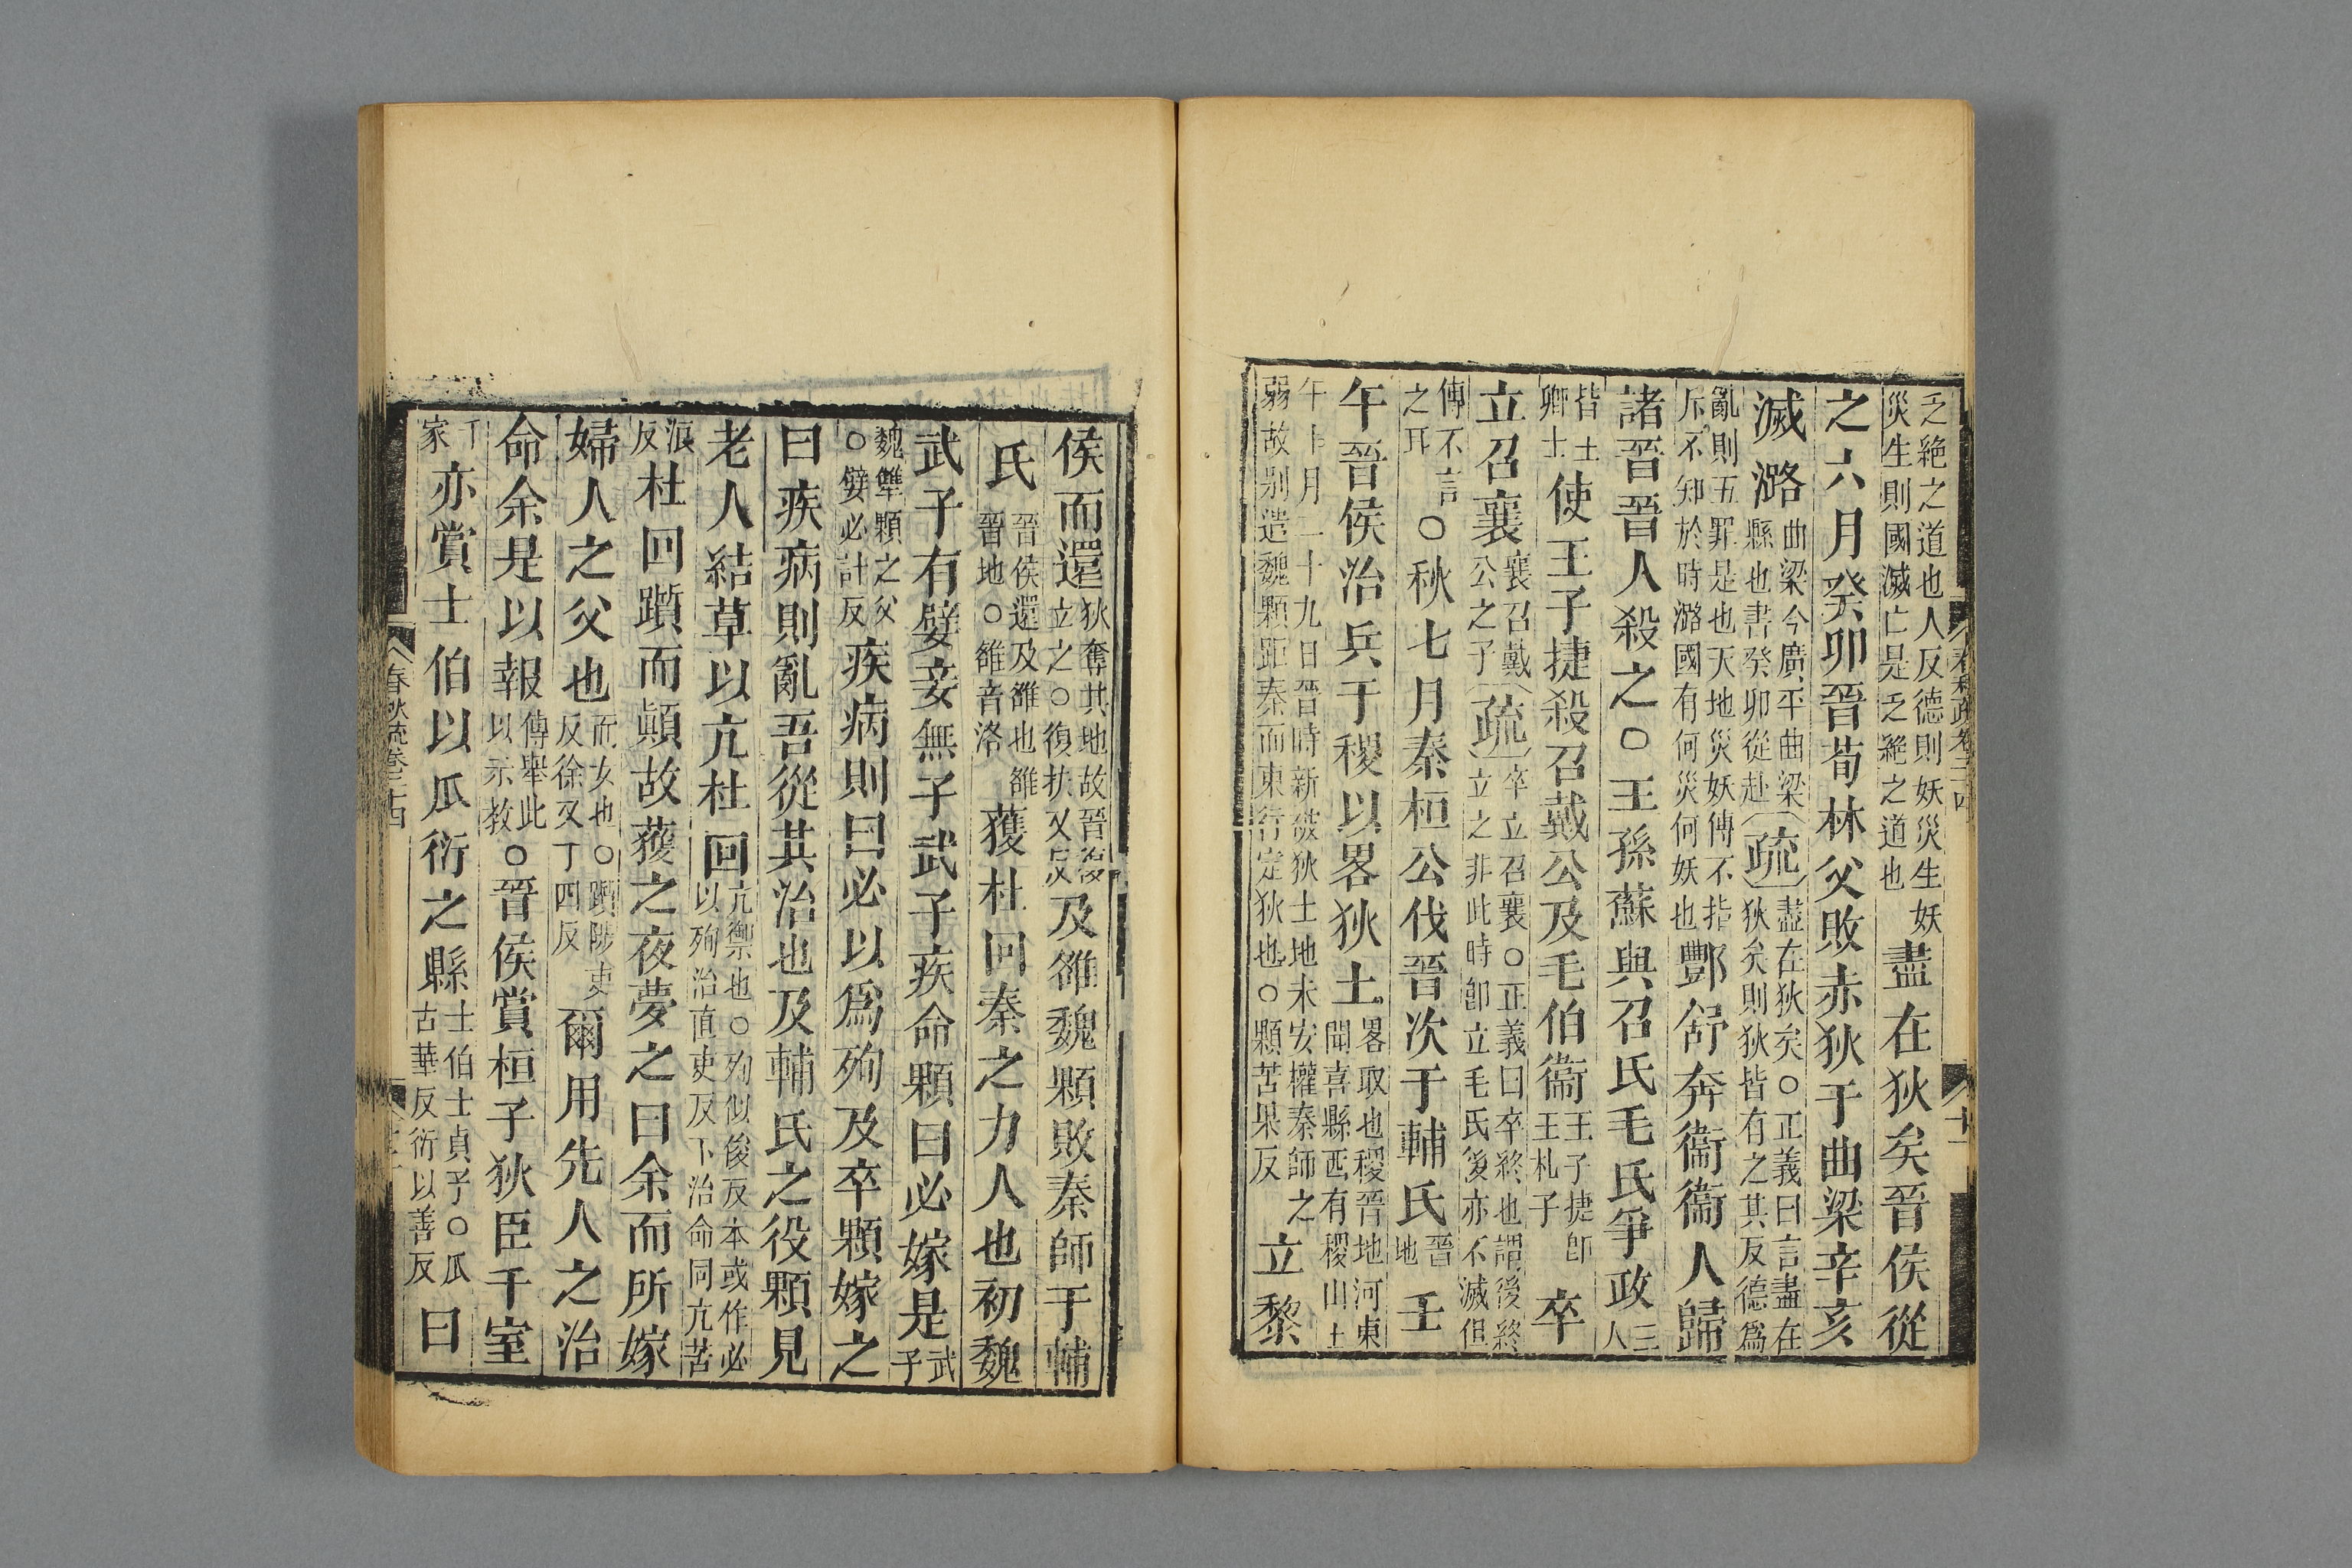 乏絶之道也人反德則妖災生妖
災生則國滅亡是乏絶之道也
盡在狄矣晉侯從
之六月癸卯晉荀林父敗赤狄于曲梁辛亥
滅潞
曲梁今廣平曲梁
縣也書癸卯從赴
疏
盡在狄矣○正義曰言盡在
狄矣則狄皆有之其反德爲
亂則五罪是也天地災妖傳不指
斥不知於時潞國有何災何妖也
酆舒奔衞衞人歸
諸晉晉人殺之○王孫蘇與召氏毛氏爭政
三
人
皆王
卿士
使王子捷殺召戴公及毛伯衞
王子捷卽
王札子
卒
立召襄
襄召戴
公之子
疏
卒立召襄○正義曰卒終也謂後終
立之非此時卽立毛氏後亦不滅但
傳不言
之耳
○秋七月秦桓公伐晉次于輔氏
晉
地
壬
午晉侯治兵于稷以畧狄土
畧取也稷晉地河東
聞喜縣西有稷山土
午十月二十九日晉時新破狄土地未安權秦師之
弱故别遣魏顆距秦而東行定狄也○顆苦果反
立黎
侯而還
狄奪其地故晉復
立之○復扶又反
及雒魏顆敗秦師于輔
氏
晉侯還及雒也雒
晉地○雒音洛
獲杜回秦之力人也初魏
武子有嬖妾無子武子疾命顆曰必嫁是
武
子
魏犨顆之父
○嬖必計反
疾病則曰必以爲殉及卒顆嫁之
曰疾病則亂吾從其治也及輔氏之役顆見
老人結草以亢杜回
亢禦也○殉似俊反本或作必
以殉治直吏反下治命同亢苦
浪
反
杜回躓而顛故獲之夜夢之曰余而所嫁
婦人之父也
而女也○躓陟吏
反徐又丁四反
爾用先人之治
命余是以報
傳舉此
以示教
○晉侯賞桓子狄臣千室
丁
家
亦賞士伯以瓜衍之縣
士伯士貞子○瓜
古華反衍以善反
曰
春秋疏卷二十四